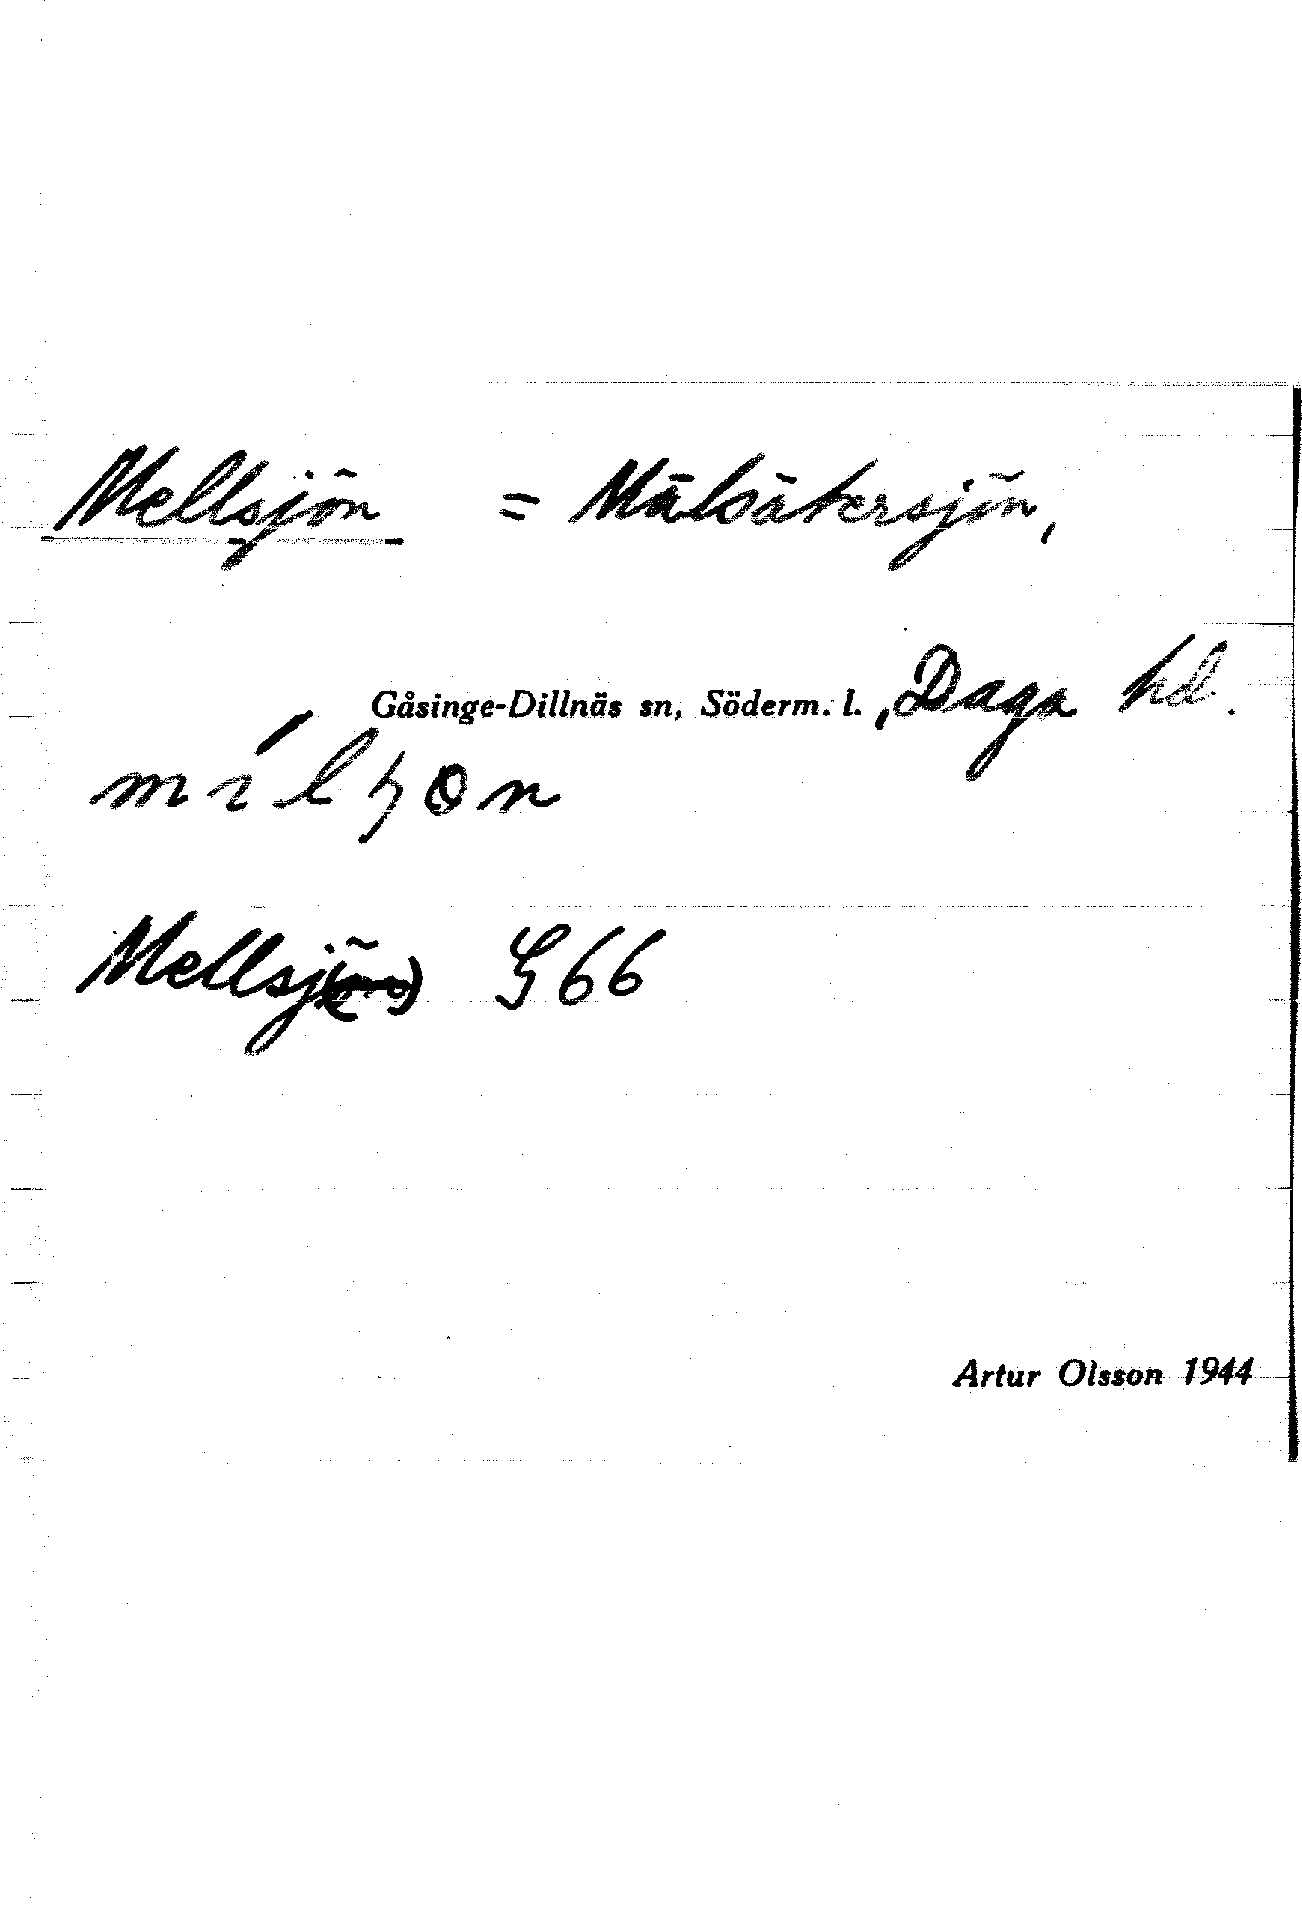 Mellsjön = Mälsåkersjön,
Gåsinge-Dillnäs sn, Söderm. l., Daga hd.
Mellsj(ön) G66
Artur Olsson 1944